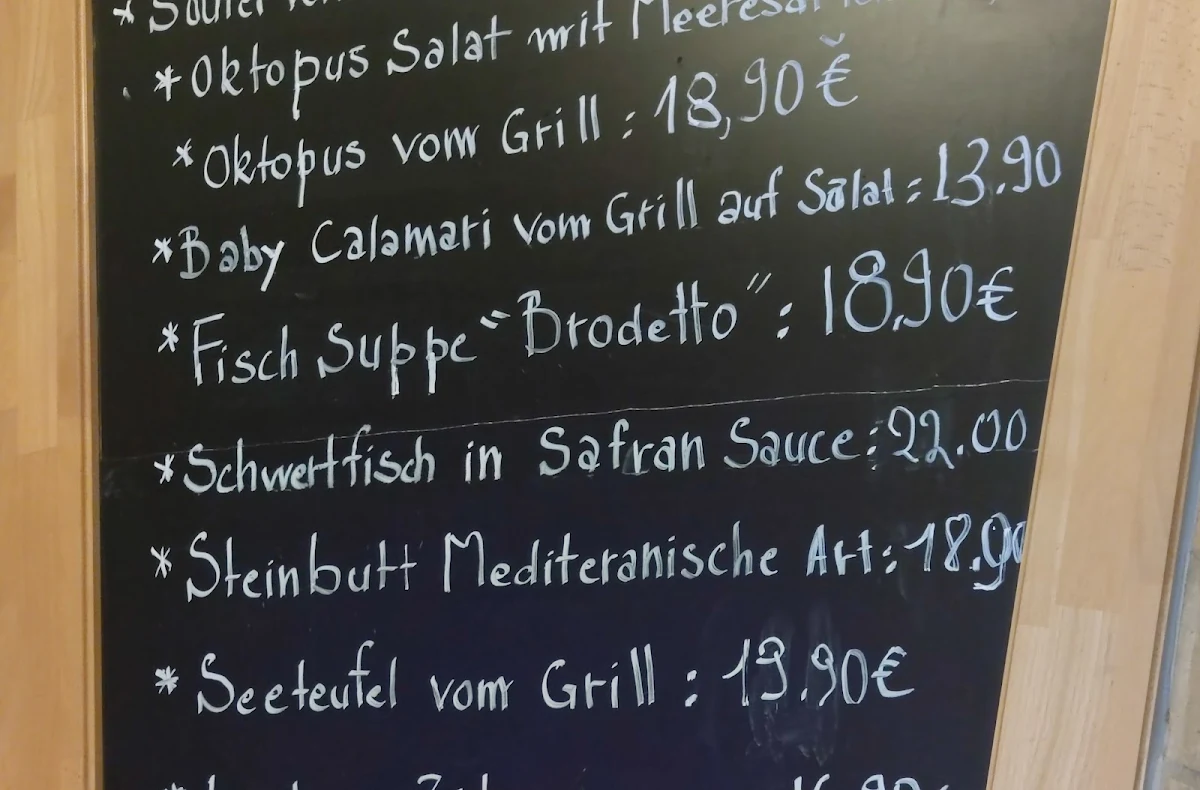 * Oktopus Salat mit
* Oktopus vom Grill : 18,90 €
* Baby Calamari vom Grill auf Salat : 13.90
* Fisch Suppe "Brodetto" : 18.90 €
* Schwertfisch in Safran Sauce : 22.00
* Steinbutt Mediteranische Art : 18.90
* Seeteufel vom Grill : 19.90 €